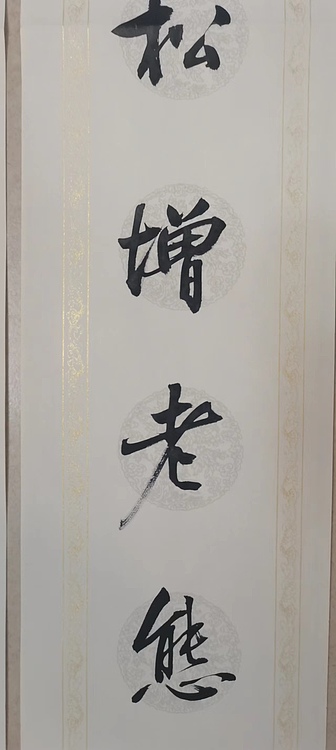 松增老態